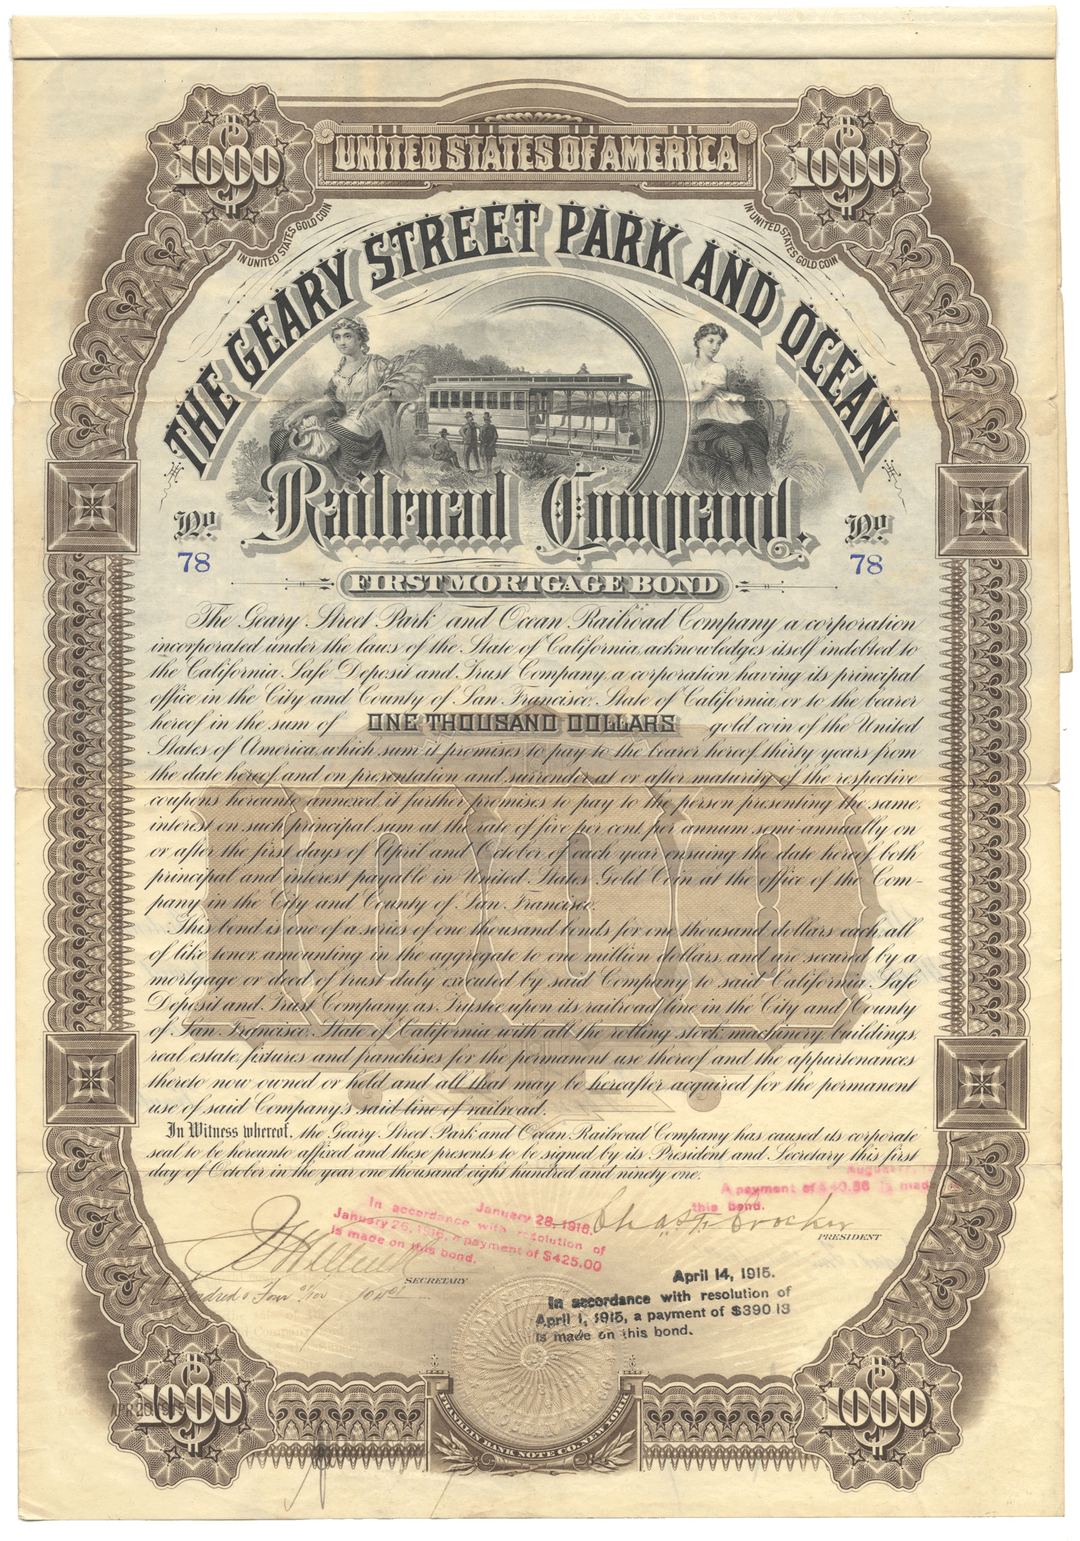 $ 1000
UNITED STATES OF AMERICA
$ 1000
IN UNITED STATES GOLD COIN
IN UNITED STATES GOLD COIN
THE GEARY STREET PARK AND OCEAN
Railroad Company.
No. 78
No. 78
FIRST MORTGAGE BOND
The Geary Street Park and Ocean Railroad Company a corporation
incorporated under the laws of the State of California, acknowledges itself indebted to
the California Safe Deposit and Trust Company, a corporation having its principal
office in the City and County of San Francisco, State of California, or to the bearer
hereof in the sum of ONE THOUSAND DOLLARS gold coin of the United
States of America, which sum it promises to pay to the bearer hereof thirty years from
the date hereof, and on presentation and surrender at or after maturity of the respective
coupons hereunto annexed it further promises to pay to the person presenting the same,
interest on such principal sum at the rate of five per cent. per annum semi-annually on
or after the first days of April and October of each year ensuing the date hereof both
principal and interest payable in United States Gold Coin at the office of the Com-
pany in the City and County of San Francisco.
This bond is one of a series of one thousand bonds for one thousand dollars each, all
of like tenor, amounting in the aggregate to one million dollars, and are secured by a
mortgage or deed of trust duly executed by said Company to said California Safe
Deposit and Trust Company, as Trustee upon its railroad line in the City and County
of San Francisco, State of California with all the rolling stock, machinery, buildings,
real estate, fixtures and franchises for the permanent use thereof and the appurtenances
thereto now owned or held and all that may be hereafter acquired for the permanent
use of said Company's said line of railroad.
In Witness whereof, the Geary Street Park and Ocean Railroad Company has caused its corporate
seal to be hereunto affixed and these presents to be signed by its President and Secretary this first
day of October in the year one thousand eight hundred and ninety one.
August
A payment of $40.88 is made
this bond.
January 28, 1916.
In accordance with resolution of
January 26, 1916, a payment of $425.00
is made on this bond.
Chas. F. Crocker
PRESIDENT
SECRETARY
April 14, 1915.
In accordance with resolution of
April 1, 1915, a payment of $390.13
is made on this bond.
$ 1000
$ 1000
FRANKLIN BANK NOTE CO. NEW YORK